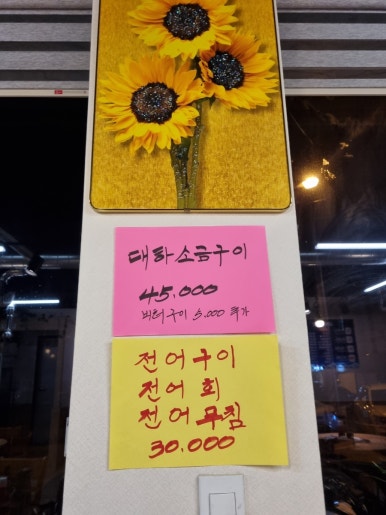 대하소금구이
45.000
버터구이 5.000 추가
전어구이
전어 회
전어무침
30.000